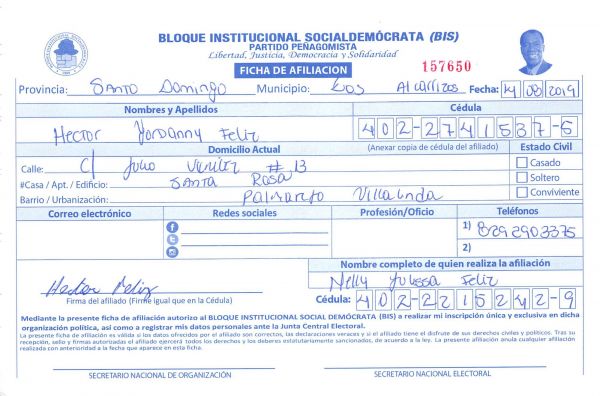 BLOQUE INSTITUCIONAL SOCIALDEMÓCRATA (BIS)
PARTIDO PEÑAGOMISTA
Libertad, Justicia, Democracia y Solidaridad
FICHA DE AFILIACION
157650
Provincia: Santo Domingo Municipio: Los Alcarrizos Fecha: 14/08/2019
Nombres y Apellidos Cédula
Hector Yordanny Feliz 402-2741537-5
Domicilio Actual (Anexar copia de cédula del afiliado) Estado Civil
Calle: C/ Julio #13 Casado
#Casa / Apt. / Edificio: Santa Rosa Soltero
Barrio / Urbanización: Palmarejo Villa Linda Conviviente
Correo electrónico Redes sociales Profesión/Oficio Teléfonos
1) 8292902375
2)
Nombre completo de quien realiza la afiliación
Hector Feliz Nelly Julissa Feliz
Firma del afiliado (Firme igual que en la Cédula) Cédula: 402-2215242-9
Mediante la presente ficha de afiliación autorizo al BLOQUE INSTITUCIONAL SOCIAL DEMÓCRATA (BIS) a realizar mi inscripción única y exclusiva en dicha
organización política, así como a registrar mis datos personales ante la Junta Central Electoral.
La presente ficha de afiliación es válida si los datos ofrecidos por el afiliado es correctos, las declaraciones veraces y si el afiliado tiene el disfrute de sus derechos civiles y políticos. Tras su
recepción, sello y firmas autorizadas el afiliado ejercerá todos los derechos y los deberes estatutariamente sancionados, de acuerdo a la ley. La presente afiliación anula cualquier afiliación
realizada con anterioridad a la fecha que aparece en esta ficha.
SECRETARIO NACIONAL DE ORGANIZACIÓN SECRETARIO NACIONAL ELECTORAL